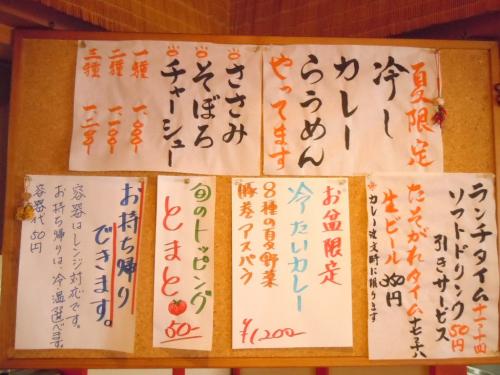 夏限定
冷し
カレー
らうめん
やってます
ささみ
そぼろ
チャーシュー
一種 1,000
二種 1,100
三種 1,200
ランチタイム 十一〜十四
ソフトドリンク 50円
引きサービス
たそがれタイム 十七〜十八
生ビール 350円
※カレー注文時に限ります
お盆限定
冷たいカレー
8種の夏野菜
豚巻アスパラ
¥1,200
旬のトッピング
とまと
50-
お持ち帰り
できます。
容器はレンジ対応です。
お持ち帰りは、冷・温選べます。
容器代 50円